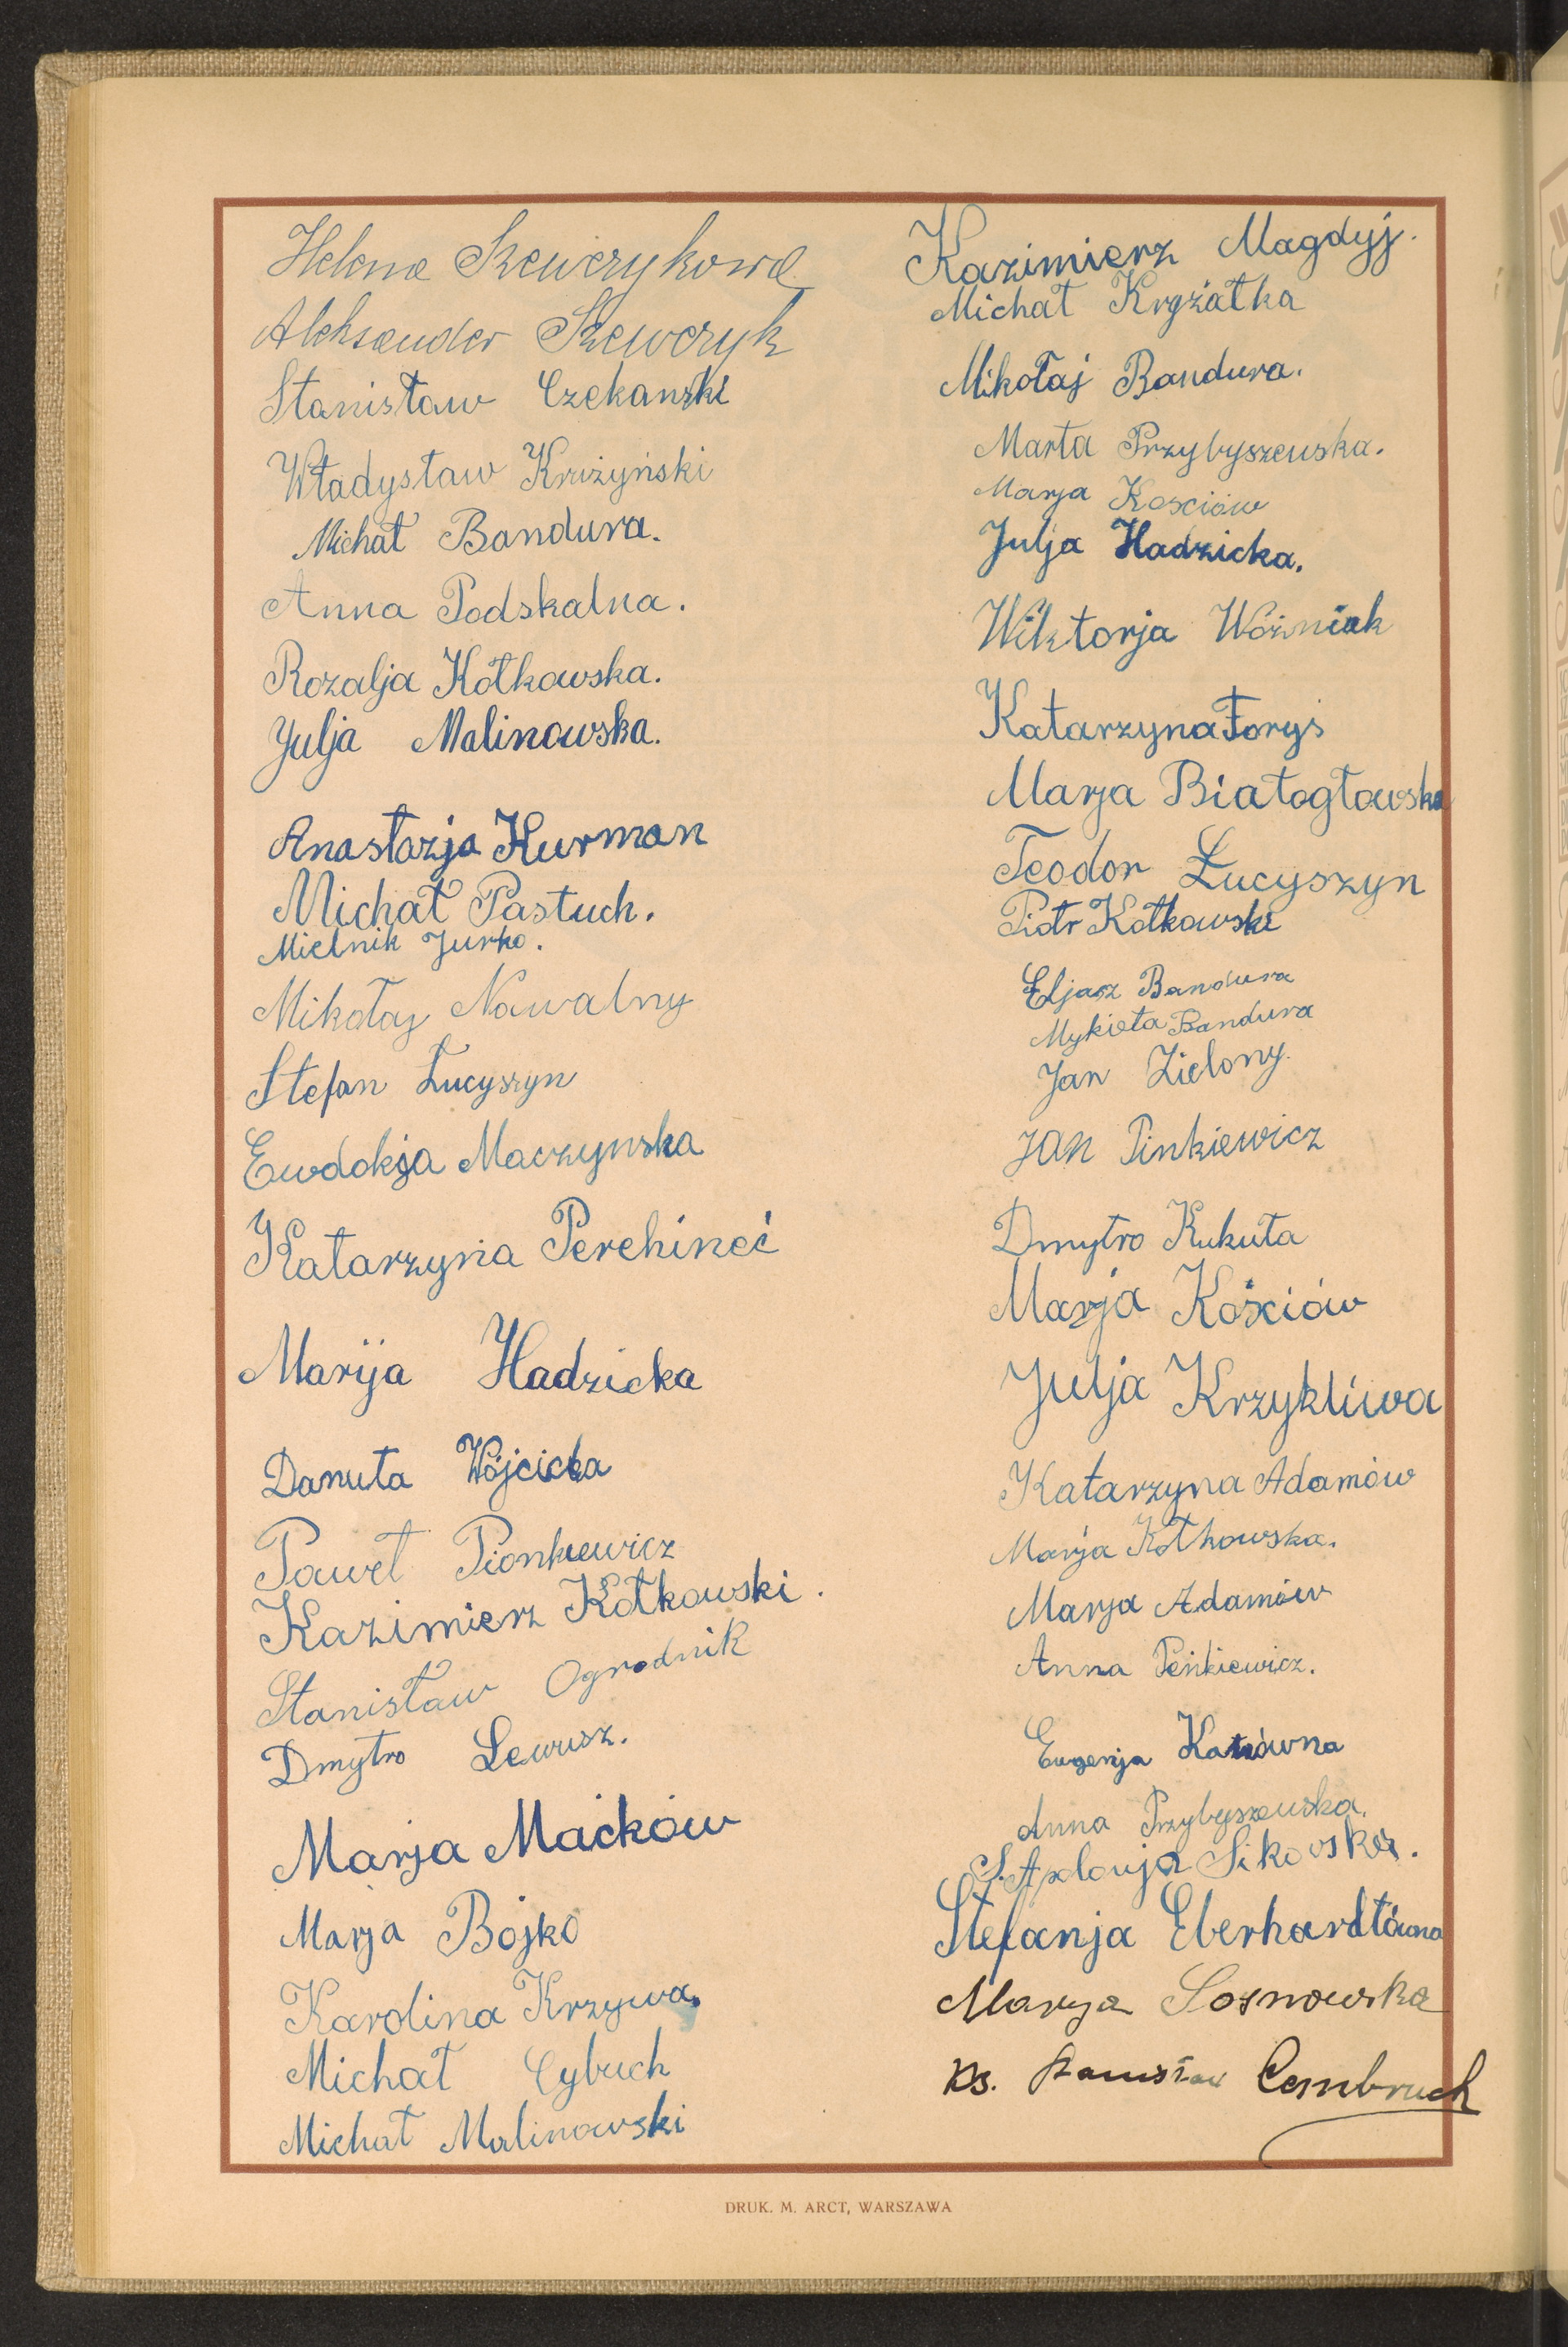 Helena Szewczykowa
Aleksander Szewczyk
Stanisław Czekanski
Władysław Krużyński
Michał Bandura.
Anna Podskalna.
Rozalja Kotkowska.
Julja Malinowska.
Anastazja Hurman
Michał Pastuch.
Mielnik Jurko.
Mikołaj Nawalny
Stefan Łucyszyn
Ewdokja Maczynska
Katarzyna Perehineć
Marija Hadzicka
Danuta Wójcicka
Paweł Pionkiewicz
Kazimierz Kotkowski.
Stanisław Ogrodnik
Dmytro Lewusz.
Marja Maćków
Marja Bojko
Karolina Krzywa
Michał Cybuch
Michał Malinowski
Kazimierz Magdyj.
Michał Kryżatka
Mikołaj Bandura.
Marta Przybyszewska.
Marja Kosciów
Julja Hadzicka.
Wiktorja Woźniak
Katarzyna Forys
Marja Białogłowska
Teodor Łucyszyn
Piotr Kotkowski
Eljasz Bandura
Mykieta Bandura
Jan Zielony.
JAN Pinkiewicz
Dmytro Kukuła
Marja Kościów
Julja Krzykliwa
Katarzyna Adamów
Marja Kotkowska.
Marja Adamów
Anna Penkiewicz.
Eugenja
Anna Przybyszewska.
S. Apolonja Sikorska.
Stefanja Eberhardtówna
Marya Sosnowska
Ks. Stanisław Cembruch
DRUK. M. ARCT, WARSZAWA